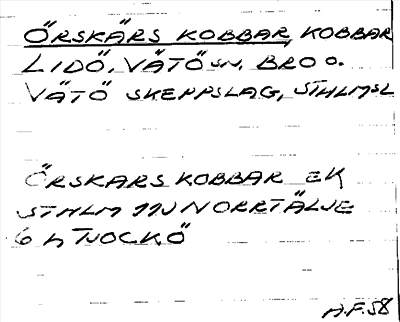 ÖRSKÄRS KOBBAR, KOBBAR
LIDÖ, VÄTÖ SN, BRO O.
VÄTÖ SKEPPSLAG, STHLMSL
ÖRSKÄRS KOBBAR EK
STHLM 11J NORRTÄLJE
6 h TJOCKÖ
A.F. 58